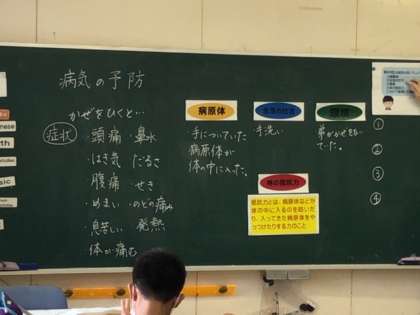 病気の予防
かぜをひくと…
症状
・頭痛・鼻水
・はき気 だるさ
・腹痛・せき
・めまい・のどの痛み
・息苦しい 発熱
体が痛む
病原体
・手についていた
病原体が
体の中に入った。
・手洗い
環境
弟がかぜをひい
ていた。
体の抵抗力
抵抗力とは、病原体などが
体の中に入るのを防いだ
り、入ってきた病原体をや
っつけたりする力のこと
①
②
③
④